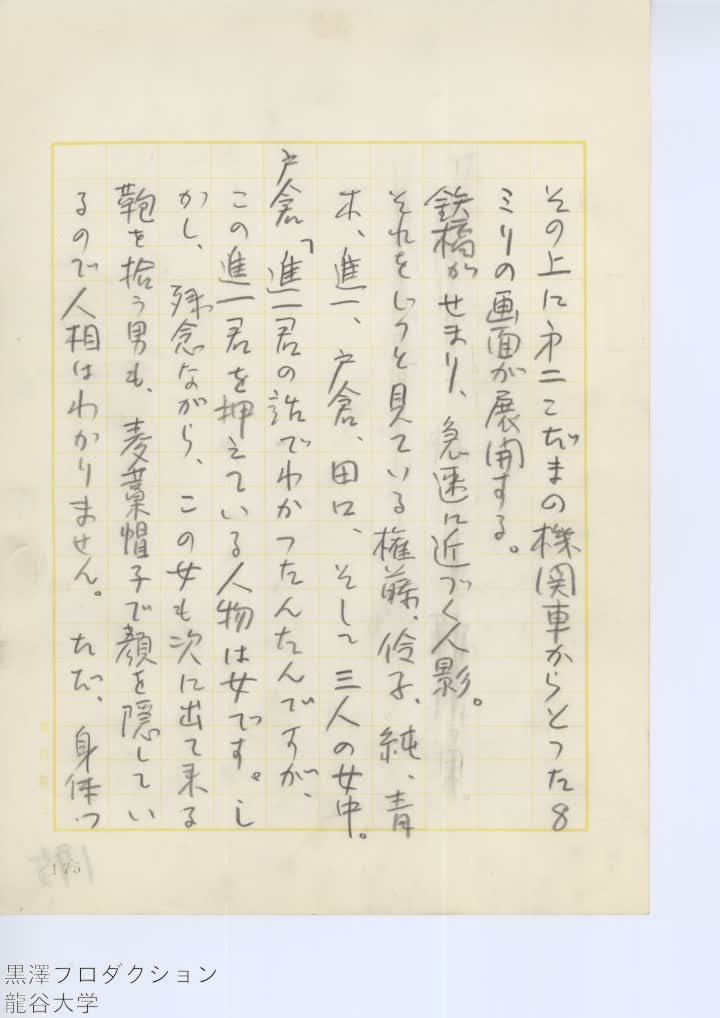 その上に第二こだまの機関車からとつた8
ミリの画面が展開する。
鉄橋がせまり、急速に近づく人影。
それをじつと見ている権藤、伶子、純、青
木、進一、戸倉、田口、そして三人の女中。
戸倉「進一君の話でわかつたんたんですが、
この進一君を押えている人物は女です。し
かし、残念ながら、この女も次に出て来る
鞄を拾う男も、麦藁帽子で顔を隠してい
るので人相はわかりません。ただ、身体つ
175
黒澤プロダクション
龍谷大学